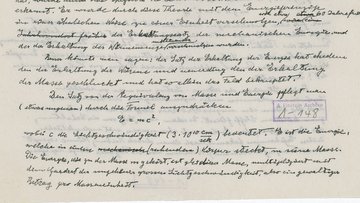 erkannt. Es wurde durch diese Theorie mit dem Energieprinzip
zu einer Einheit verschmolzen
der mechanischen Energie und
der Erhaltung der
Man könnte nun sagen: der Satz der Erhaltung der Energie hat
den der Erhaltung der Wärme und nun den der Erhaltung
der Masse verschluckt und hat allein das Feld behauptet.
Den Satz von der Äquivalenz von Masse und Energie pflegt man
(etwas ungenau) durch die Formel auszudrücken
E = mc²,
wobei c die Lichtgeschwindigkeit (3 · 10¹⁰ cm/sek) bedeutet. E ist die Energie,
welche in einem (ruhenden) Körper steckt, m seine Masse.
Die Energie, die zu der Masse m gehört, ist gleich diese Masse, multipliziert mit
dem Quadrat der ungeheuer grossen Lichtgeschwindigkeit, also ein gewaltiger
Betrag pro Masseneinheit.
1-148